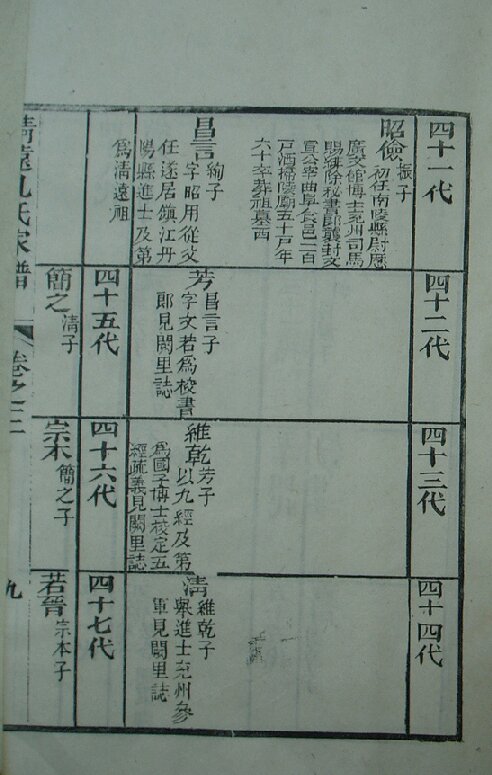 四十一代
昭儉 振子
初任南陵縣尉歷
廣文館博士兗州司馬
賜緋除秘書郎襲封文
宣公宰曲阜食邑二百
戶洒掃陵廟五十戶年
六十卒葬祖墓西
昌言 絢子
字昭用從父
任遂居鎮江丹
陽縣進士及第
為清遠祖
四十二代
芳 昌言子
字文若為校書
郎見闕里誌
四十三代
維乾 芳子
以九經及第
為國子博士校定五
經疏義見闕里誌
四十四代
清 維乾子
舉進士兗州參
軍見闕里誌
四十五代
簡之 清子
四十六代
宗本 簡之子
四十七代
若晉 宗本子
清遠孔氏家譜
卷之二
九